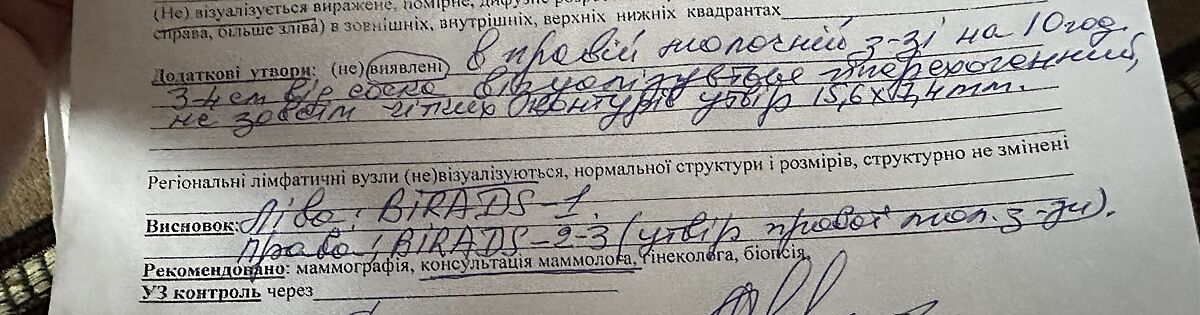 (Не) візуалізується виражене, помірне, дифузне
справа, більше зліва) в зовнішніх, внутрішніх, верхніх нижніх квадрантах
Додаткові утвори: (не) виявлені в правій молочній з-зі на 10 год.
3-4 см від соска візуалізується гіперехогенний,
не зовсім чітких контурів утвір 15,6х17,4 mm.
Регіональні лімфатичні вузли (не)візуалізуються, нормальної структури і розмірів, структурно не змінені
Висновок: Ліво: BIRADS-1.
Право: BIRADS-2-3 (утвір правої мол. з-зи).
Рекомендовано: маммографія, консультація маммолога, гінеколога, біопсія,
УЗ контроль через